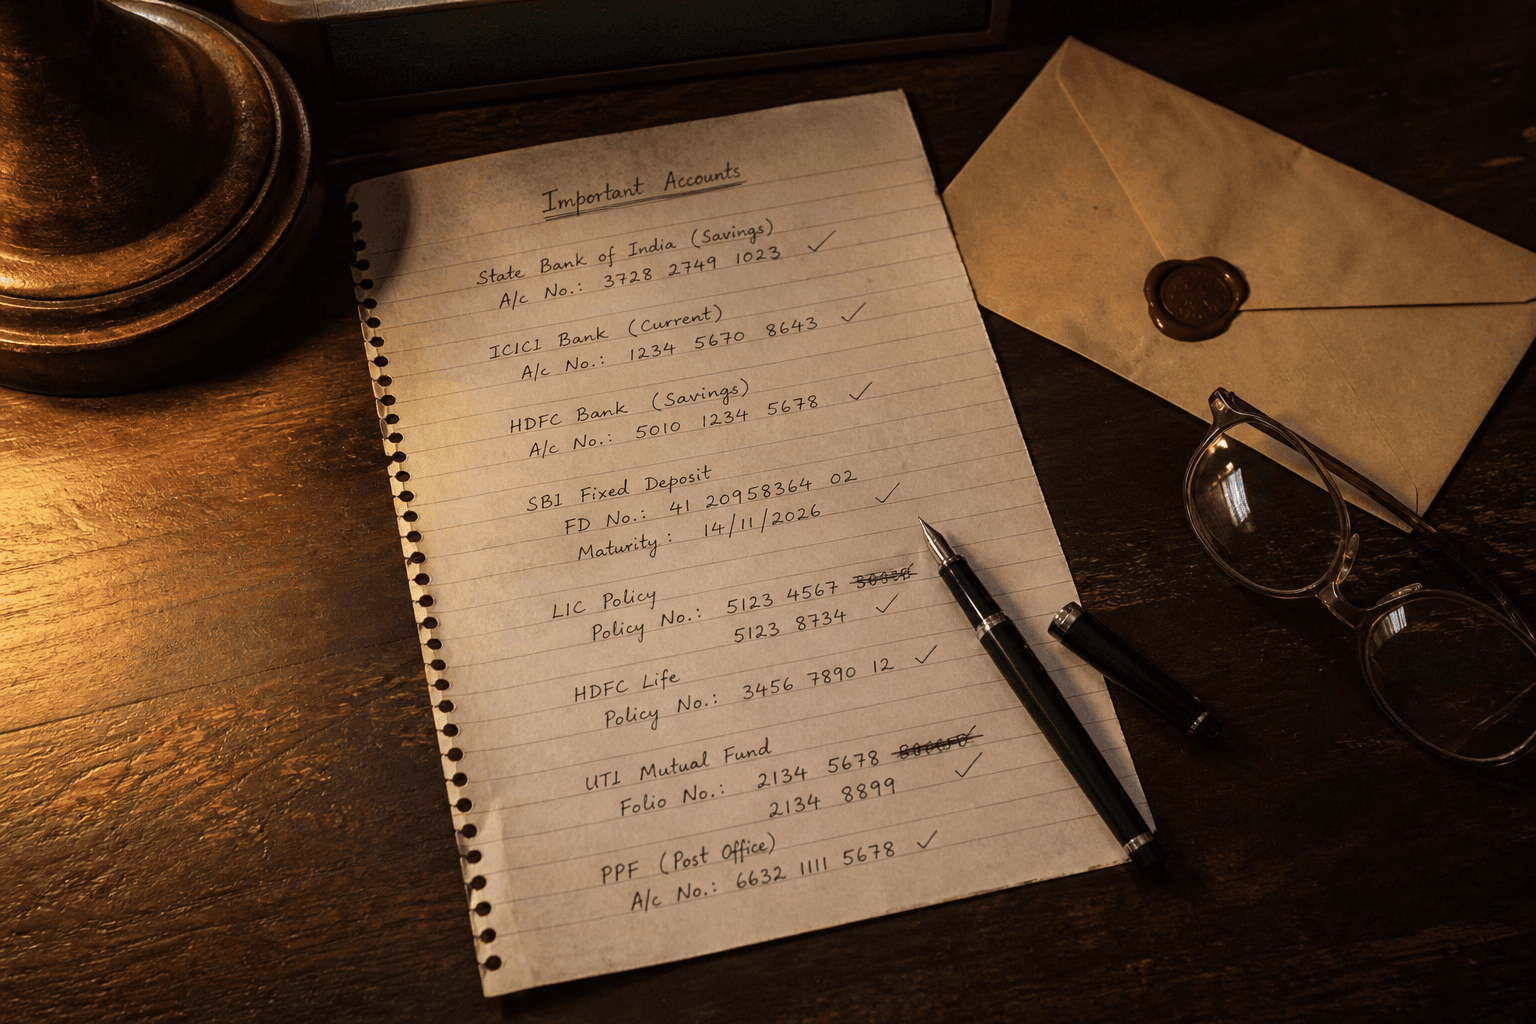 Important Accounts
State Bank of India (Savings)
A/c No.: 3728 2749 1023 ✓
ICICI Bank (Current)
A/c No.: 1234 5670 8643 ✓
HDFC Bank (Savings)
A/c No.: 5010 1234 5678 ✓
SBI Fixed Deposit
FD No.: 41 20958364 02
Maturity: 14/11/2026 ✓
LIC Policy
Policy No.: 5123 4567
5123 8734 ✓
HDFC Life
Policy No.: 3456 7890 12 ✓
UTI Mutual Fund
Folio No.: 2134 5678
2134 8899 ✓
PPF (Post Office)
A/c No.: 6632 1111 5678 ✓